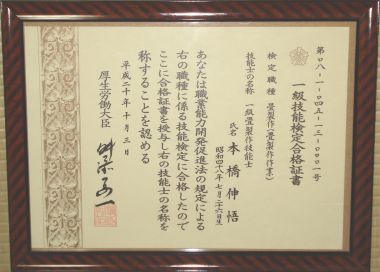 第〇八-一-〇四五-一三-〇〇〇一号
一級技能検定合格証書
検定職種 畳製作(畳製作作業)
技能士の名称 一級畳製作技能士
氏名 本橋伸悟
昭和四十八年七月二十六日生
あなたは職業能力開発促進法の規定による
右の職種に係る技能検定に合格したので
ここに合格証書を授与し右の技能士の名称を
称することを認める
平成二十年十月三日
厚生労働大臣